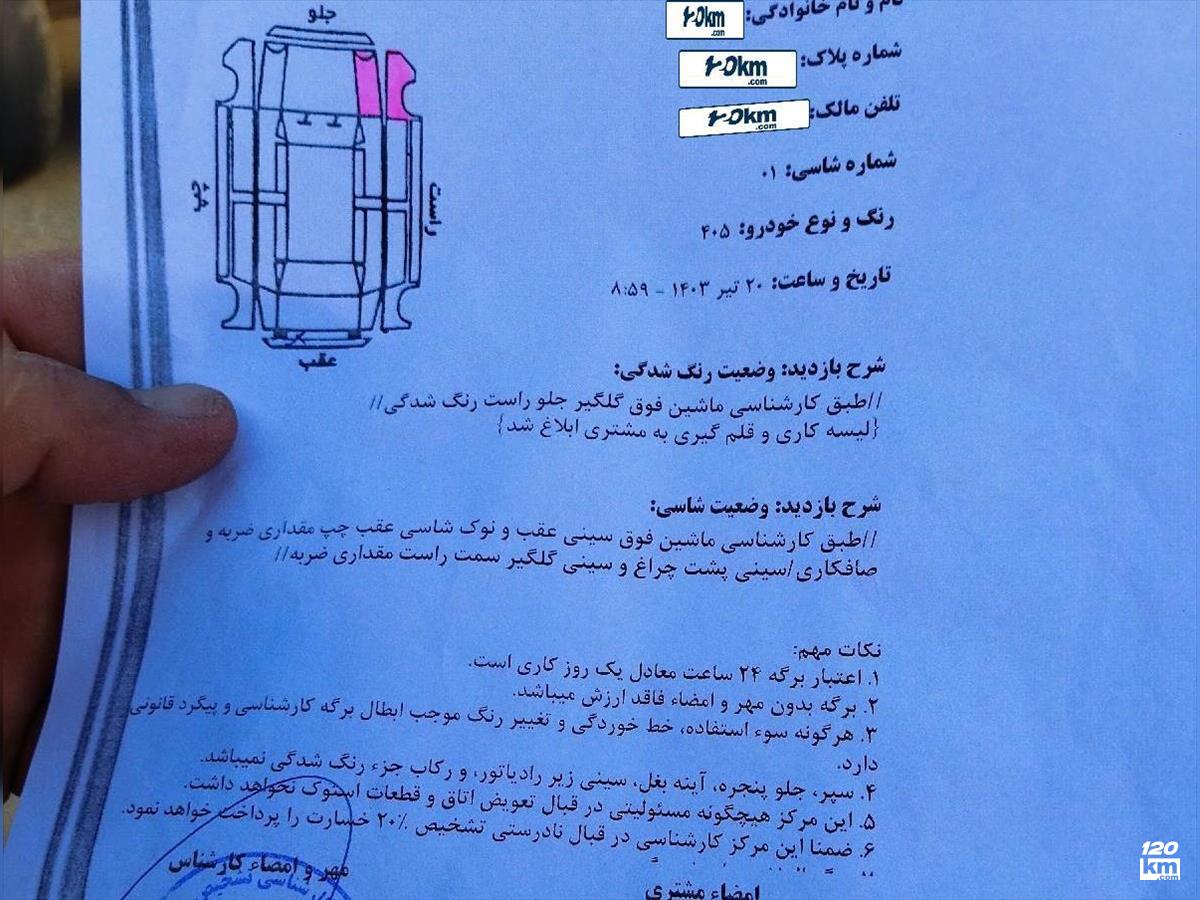 نام و نام خانوادگی:
شماره پلاک:
تلفن مالک:
شماره شاسی: ۰۱
رنگ و نوع خودرو: ۴۰۵
تاریخ و ساعت: ۲۰ تیر ۱۴۰۳ - ۸:۵۹
جلو
چپ
راست
عقب
شرح بازدید: وضعیت رنگ شدگی:
//طبق کارشناسی ماشین فوق گلگیر جلو راست رنگ شدگی//
{لیسه کاری و قلم گیری به مشتری ابلاغ شد}
شرح بازدید: وضعیت شاسی:
//طبق کارشناسی ماشین فوق سینی عقب و نوک شاسی عقب چپ مقداری ضربه و
صافکاری/سینی پشت چراغ و سینی گلگیر سمت راست مقداری ضربه//
نکات مهم:
۱. اعتبار برگه ۲۴ ساعت معادل یک روز کاری است.
۲. برگه بدون مهر و امضاء فاقد ارزش میباشد.
۳. هرگونه سوء استفاده، خط خوردگی و تغییر رنگ موجب ابطال برگه کارشناسی و پیگرد قانونی
دارد.
۴. سپر، جلو پنجره، آینه بغل، سینی زیر رادیاتور، و رکاب جزء رنگ شدگی نمیباشد.
۵. این مرکز هیچگونه مسئولیتی در قبال تعویض اتاق و قطعات استوک نخواهد داشت.
۶. ضمنا این مرکز کارشناسی در قبال نادرستی تشخیص ۲۰٪ خسارت را پرداخت خواهد نمود.
مهر و امضاء کارشناس
امضاء مشتری
120
km
.com